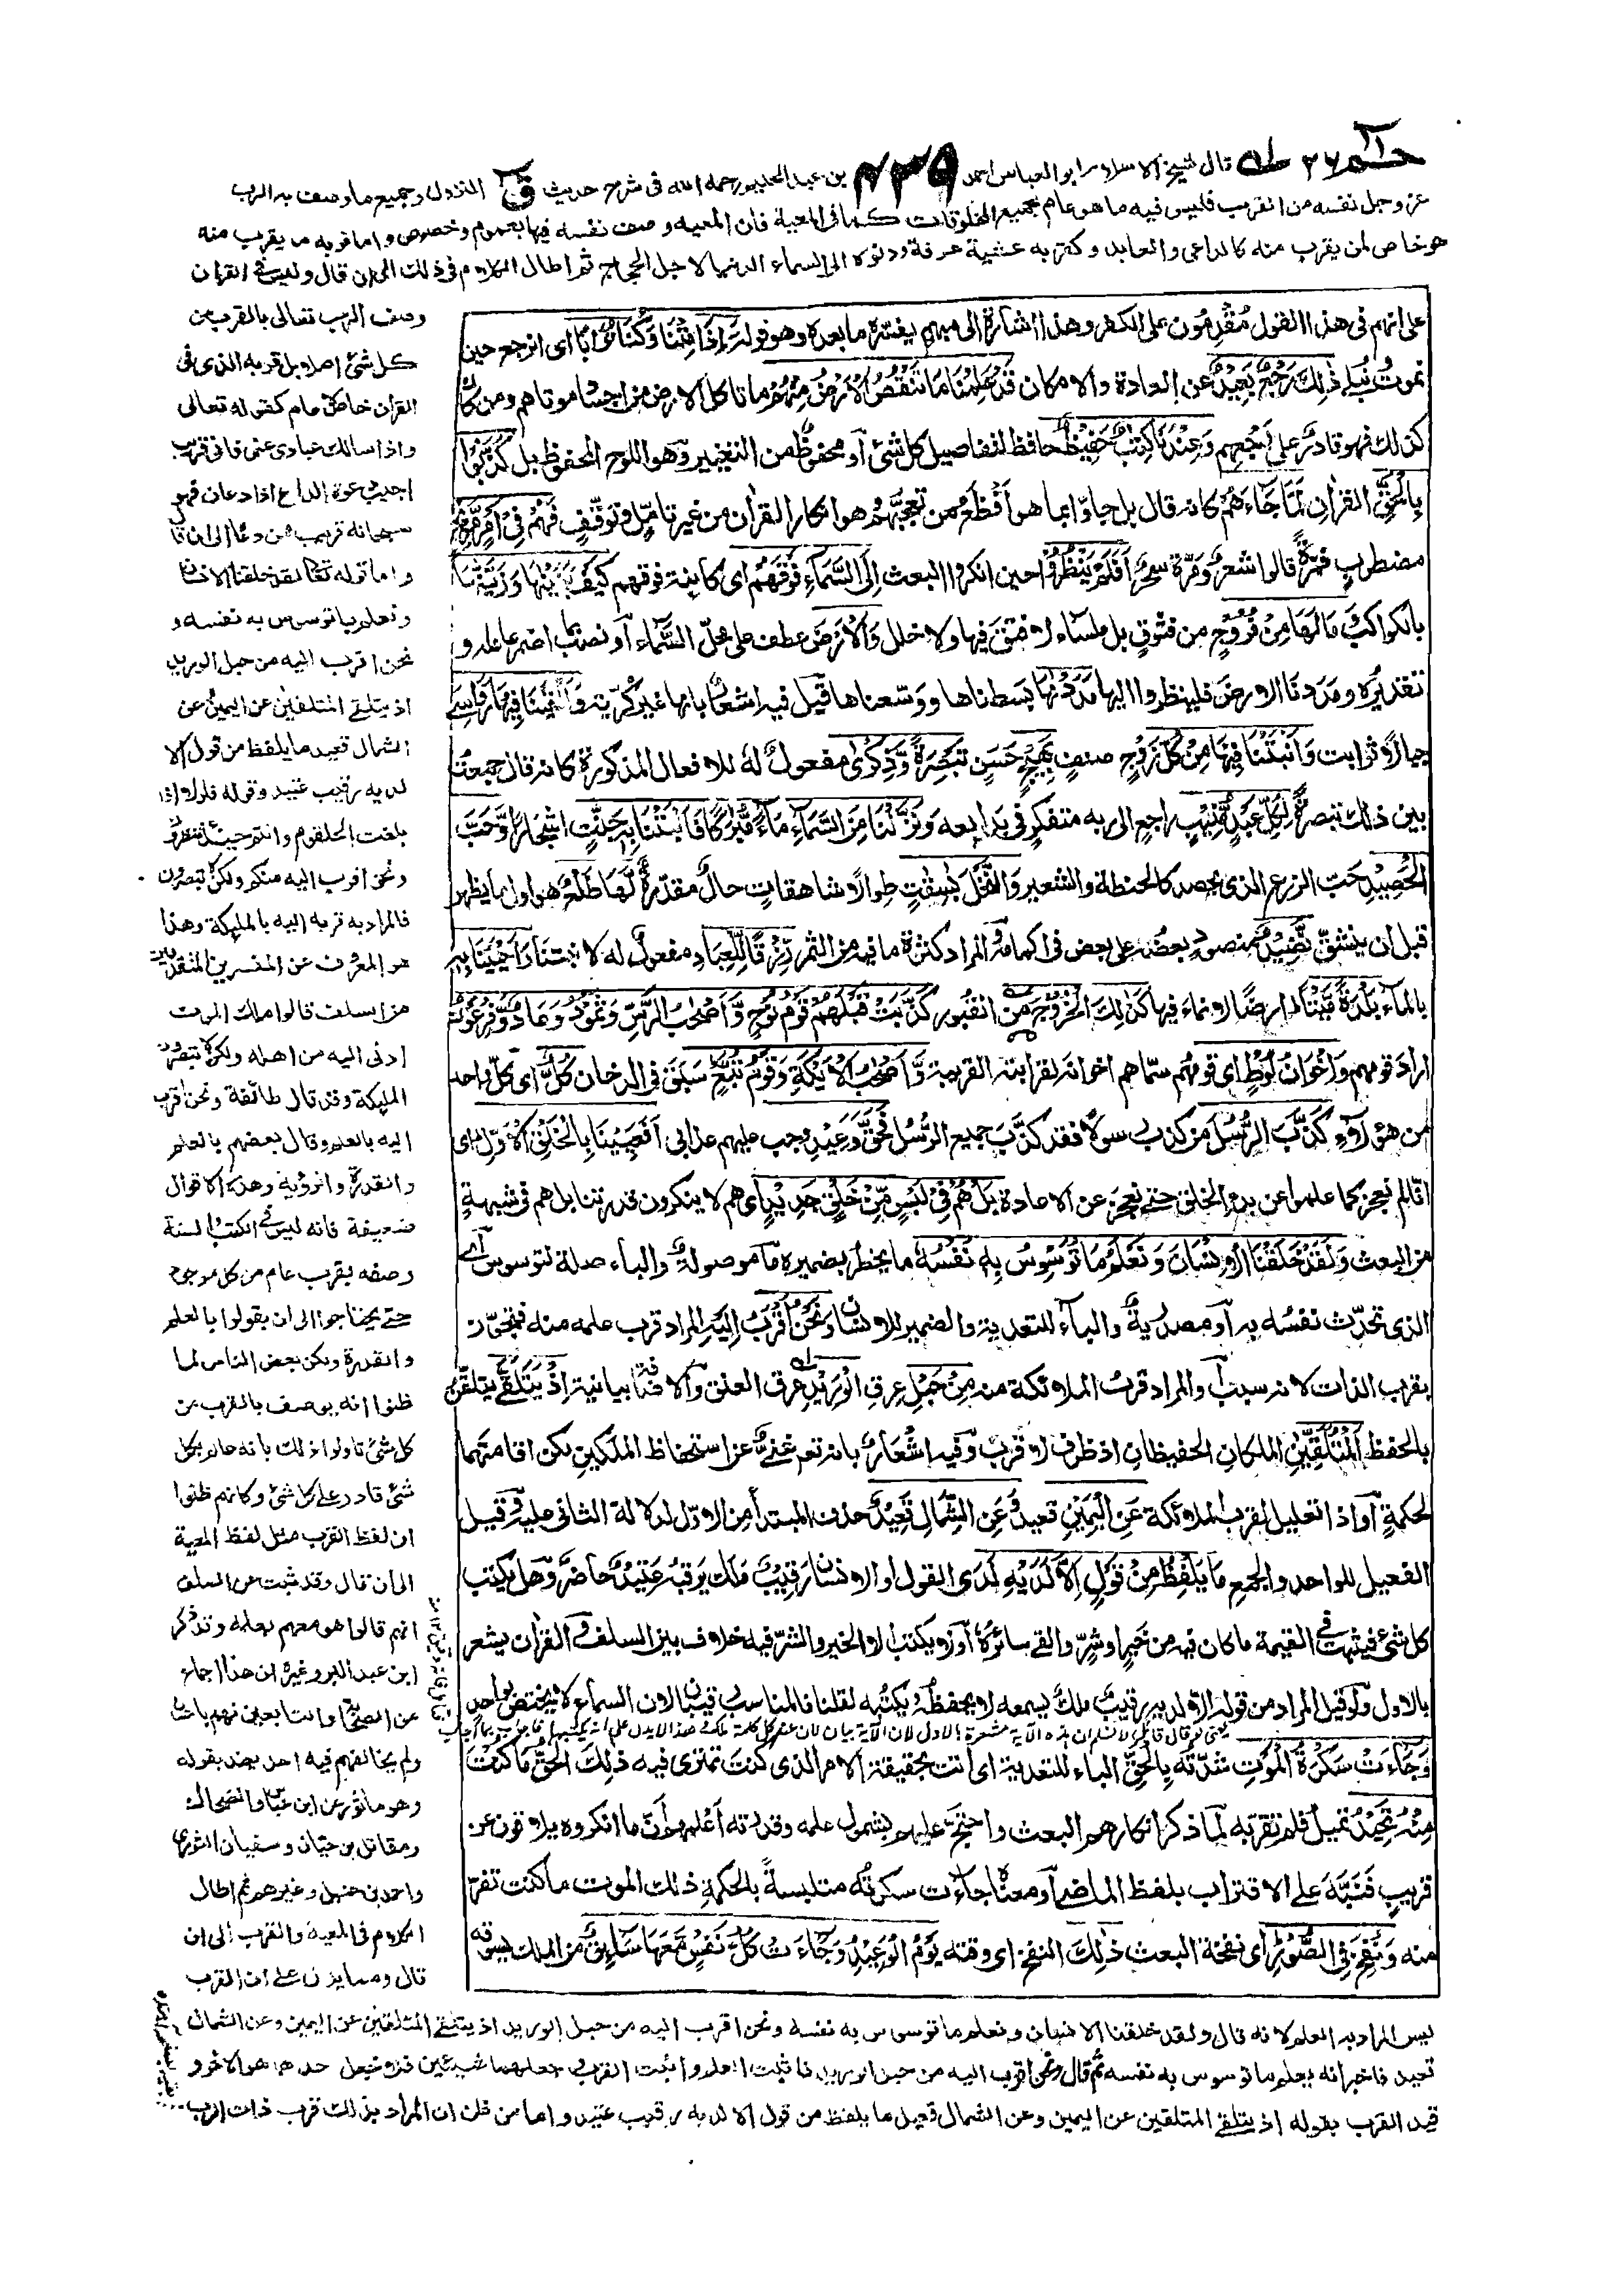 حم ٢٦ قال شيخ الاسلام ابو العباس احمد ٤٣٩ بن عبد الحليم رحمه الله فى شرح حديث ق النزول وجميع ما وصف به الرب
عز وجل نفسه من القرب فليس فيه ما هو عام لجميع المخلوقات كما فى المعية فان المعيه وصف نفسه فيها بعموم وخصوص واما قربه ما يقرب منه
هو خاص لمن يقرب منه كالداعى والعابد وكقربه عشية عرفة ودنوه الى السماء الدنيا لاجل الحجاج ثم اطال الكلام فى ذلك الى ان قال وليس فى القران
على انهم فى هذا القول مُقْدِمُون على الكفر وهذا اشارة الى مبهم يفسّره ما بعده وهو قوله ءَاِذَا مِتْنَا وَكُنَّا تُرَابًا اى انرجع حين
نموت ونبلى ذٰلِكَ رَجْعٌ بَعِيْدٌ عن العادة والامكان قَدْ عَلِمْنَا مَا تَنْقُصُ الْاَرْضُ مِنْهُمْ ما تاكل الارض من اجساد موتاهم ومن كان
كذلك فهو قادر على رجعهم وَعِنْدَنَا كِتٰبٌ حَفِيْظٌ حافظ لتفاصيل كل شئ او محفوظ من التغيير وهو اللوح المحفوظ بل كَذَّبُوْا
بِالْحَقِّ القران لَمَّا جَاءَهُمْ كانه قال بل جاؤا بما هو اَفْظَعُ من تعجبهم هو انكار القرأن من غير تامّل وتوقّف فَهُمْ فِىْ اَمْرٍ مَّرِيْجٍ
مضطرب فمرّة قالوا شعر ومرّة سحر اَفَلَمْ يَنْظُرُوْا حين انكروا البعث اِلَى السَّمَآءِ فَوْقَهُمْ اى كاينة فوقهم كَيْفَ بَنَيْنٰهَا وَزَيَّنّٰهَا
بالكواكب مَا لَهَا مِنْ فُرُوْجٍ من فتوق بل ملساء لا فتق فيها ولا خلل وَالْاَرْضَ عطف على محلّ السّماء او نصب اضمر عامله و
تقديره ومددنا الارض فلينظروا اليها مَدَدْنٰهَا بسطناها ووسّعناها قيل فيه اشعار بانها غير كُرّية وَاَلْقَيْنَا فِيْهَا رَوَاسِىَ
جبالا ثوابت وَاَنْبَتْنَا فِيْهَا مِنْ كُلِّ زَوْجٍ صنف بَهِيْجٍ حسن تَبْصِرَةً وَّذِكْرٰى مفعول له للافعال المذكورة كانه قال جمعت
بين ذلك تبصرةً لِكُلِّ عَبْدٍ مُّنِيْبٍ راجع الى ربه متفكر فى بدايعه وَنَزَّلْنَا مِنَ السَّمَآءِ مَاءً مُّبٰرَكًا فَاَنْبَتْنَا بِهٖ جَنّٰتٍ اشجارا وَّحَبَّ
الْحَصِيْدِ حبّ الزرع الذى يحصد كالحنطة والشعير وَالنَّخْلَ بٰسِقٰتٍ طوالا شاهقات حال مقدّرة لَّهَا طَلْعٌ هو اول ما يظهر
قبل ان ينشقّ نَّضِيْدٌ منضود بعضه على بعض فى اكمامه والمراد كثرة ما فيه من الثمر رِّزْقًا لِّلْعِبَادِ مفعول له لانبتنا وَاَحْيَيْنَا بِهٖ
بالماء بَلْدَةً مَّيْتًا ارضًا لا نماء فيها كَذٰلِكَ الْخُرُوْجُ من القبور كَذَّبَتْ قَبْلَهُمْ قَوْمُ نُوْحٍ وَّاَصْحٰبُ الرَّسِّ وَثَمُوْدُ وَعَادٌ وَّفِرْعَوْنُ
اراد قومهم وَاِخْوَانُ لُوْطٍ اى قومهم سمّاهم اخوانه لقرابته القريبة وَّاَصْحٰبُ الْاَيْكَةِ وَقَوْمُ تُبَّعٍ سبق فى الدخان كُلٌّ اى كل واحد
من هؤلاء كَذَّبَ الرُّسُلَ من كذب رسولا فقد كذّب جميع الرسل فَحَقَّ وَعِيْدِ وجب عليهم عذابى اَفَعَيِيْنَا بِالْخَلْقِ الْاَوَّلِ اى
انا لم نعجز كما علموا عن بدء الخلق حتى نعجز عن الاعادة بَلْ هُمْ فِىْ لَبْسٍ مِّنْ خَلْقٍ جَدِيْدٍ اى هم لا ينكرون قدرتنا بل هم فى شبهة
من البعث وَلَقَدْ خَلَقْنَا الْاِنْسَانَ وَنَعْلَمُ مَا تُوَسْوِسُ بِهٖ نَفْسُهٗ ما يخطر بضميره ما موصولة والباء صلة لتوسوس اى
الذى تحدّث نفسه به او مصدرية والباء للتعدية والضمير للانسان وَنَحْنُ اَقْرَبُ اِلَيْهِ المراد قرب علمه منه فتجوّز
بقرب الذات لانه سببه او المراد قرب الملائكة منه مِنْ حَبْلِ عرق الْوَرِيْدِ عرق العنق والاضافة بيانية اِذْ يَتَلَقَّى يتلقّن
بالحفظ الْمُتَلَقِّيٰنِ الملكان الحفيظان اذ ظرف لاقرب وفيه اشعار بانه تعه غنى عن استحفاظ الملكين لكن اقامتهما
لحكمة او اذ تعليل لقرب الملائكة عَنِ الْيَمِيْنِ قعيد وَعَنِ الشِّمَالِ قَعِيْدٌ حذف المبتدأ من الاوّل لدلالة الثانى عليه وقيل
الفعيل للواحد والجمع مَا يَلْفِظُ مِنْ قَوْلٍ اِلَّا لَدَيْهِ لدى القول او الانسان رَقِيْبٌ ملك يرقبه عَتِيْدٌ حاضر وهل يكتب
كل شئ فيثبت فى القيمة ما كان فيه من خير او شر والقى سائره او لا يكتب الا الخير والشر فيه خلاف بين السلف وفى القران يشعر
بالاول ولو قيل المراد من قوله الا لديه رقيب ملك يسمعه لا يحفظه ويكتبه لقلنا فالمناسب رقيبان لان السماء لا يختص بواحد
وَجَآءَتْ سَكْرَةُ الْمَوْتِ شدّته بِالْحَقِّ الباء للتعدية اى اتت بحقيقة الامر الذى كنت تمترى فيه ذٰلِكَ الحقّ مَا كُنْتَ
مِنْهُ تَحِيْدُ تميل فلم تقرّبه لما ذكر انكارهم البعث واحتجّ عليهم بشمول علمه وقدرته اعلمهم ان ما انكروه يلاقون عن
قريب فنبّه على الاقتراب بلفظ الماضى او معناه جاءت سكرته متلبسة بالحكمة ذلك الموت ما كنت تفرّ
منه وَنُفِخَ فِى الصُّوْرِ اى نفخة البعث ذٰلِكَ النفخ اى وقته يَوْمُ الْوَعِيْدِ وَجَآءَتْ كُلُّ نَفْسٍ مَّعَهَا سَآئِقٌ من الملك يسوقه
وصف الرب تعالى بالقرب من
كل شئ اصلا بل قربه الذى فى
القران خاص لا عام كقوله تعالى
واذا سالك عبادى عنى فانى قريب
اجيب دعوة الداع اذا دعان فهو
سبحانه قريب ممن دعاه الى ان قال
واما قوله تعالى ولقد خلقنا الانسان
ونعلم ما توسوس به نفسه و
نحن اقرب اليه من حبل الوريد
اذ يتلقى المتلقيٰن عن اليمين وعن
الشمال قعيد ما يلفظ من قول الا
لديه رقيب عتيد وقوله فلولا اذا
بلغت الحلقوم وانتم حينئذ تنظرون
ونحن اقرب اليه منكم ولكن لا تبصرون
فالمراد به قربه اليه بالمليكة وهذا
هو المعروف عن المفسرين المتقدمين
من السلف قالوا ملك الموت
ادنى اليه من اهله ولكن لا تبصرون
المليكة وقد قال طائفة ونحن اقرب
اليه بالعلم وقال بعضهم بالعلم
والقدرة والرؤية وهذه الاقوال
ضعيفة فانه ليس فى الكتاب والسنة
وصفه بقرب عام من كل موجود
حتى يحتاجوا الى ان يقولوا بالعلم
والقدرة ولكن بعض الناس لما
ظنوا انه يوصف بالقرب من
كل شئ تاولوا ذلك بانه عالم بكل
شئ قادر على كل شئ وكانهم ظنوا
ان لفظ القرب مثل لفظ المعية
الى ان قال وقد ثبت عن السلف
انهم قالوا هو معهم بعلمه وقد ذكر
ابن عبد البر وغيره ان هذا اجماع
من الصحابة والتابعين لهم باحسان
ولم يخالفهم فيه احد يعتد بقوله
وهو ماثور عن ابن عباس والضحاك
ومقاتل بن حيان وسفيان الثورى
واحمد بن حنبل وغيرهم ثم اطال
الكلام فى المعية والقرب الى ان
قال ومما يدل على ان القرب
ليس المراد به العلم لانه قال ولقد خلقنا الانسان ونعلم ما توسوس به نفسه ونحن اقرب اليه من حبل الوريد اذ يتلقى المتلقيٰن عن اليمين وعن الشمال
قعيد فاخبر انه يعلم ما توسوس به نفسه ثم قال ونحن اقرب اليه من حبل الوريد فاثبت العلم واثبت القرب وجعلهما شيئين فلا تجعل احدهما هو الاخر و
قيد القرب بقوله اذ يتلقى المتلقيين عن اليمين وعن الشمال قعيد ما يلفظ من قول الا لديه رقيب عتيد واما من ظن ان المراد بذلك قرب ذات الرب